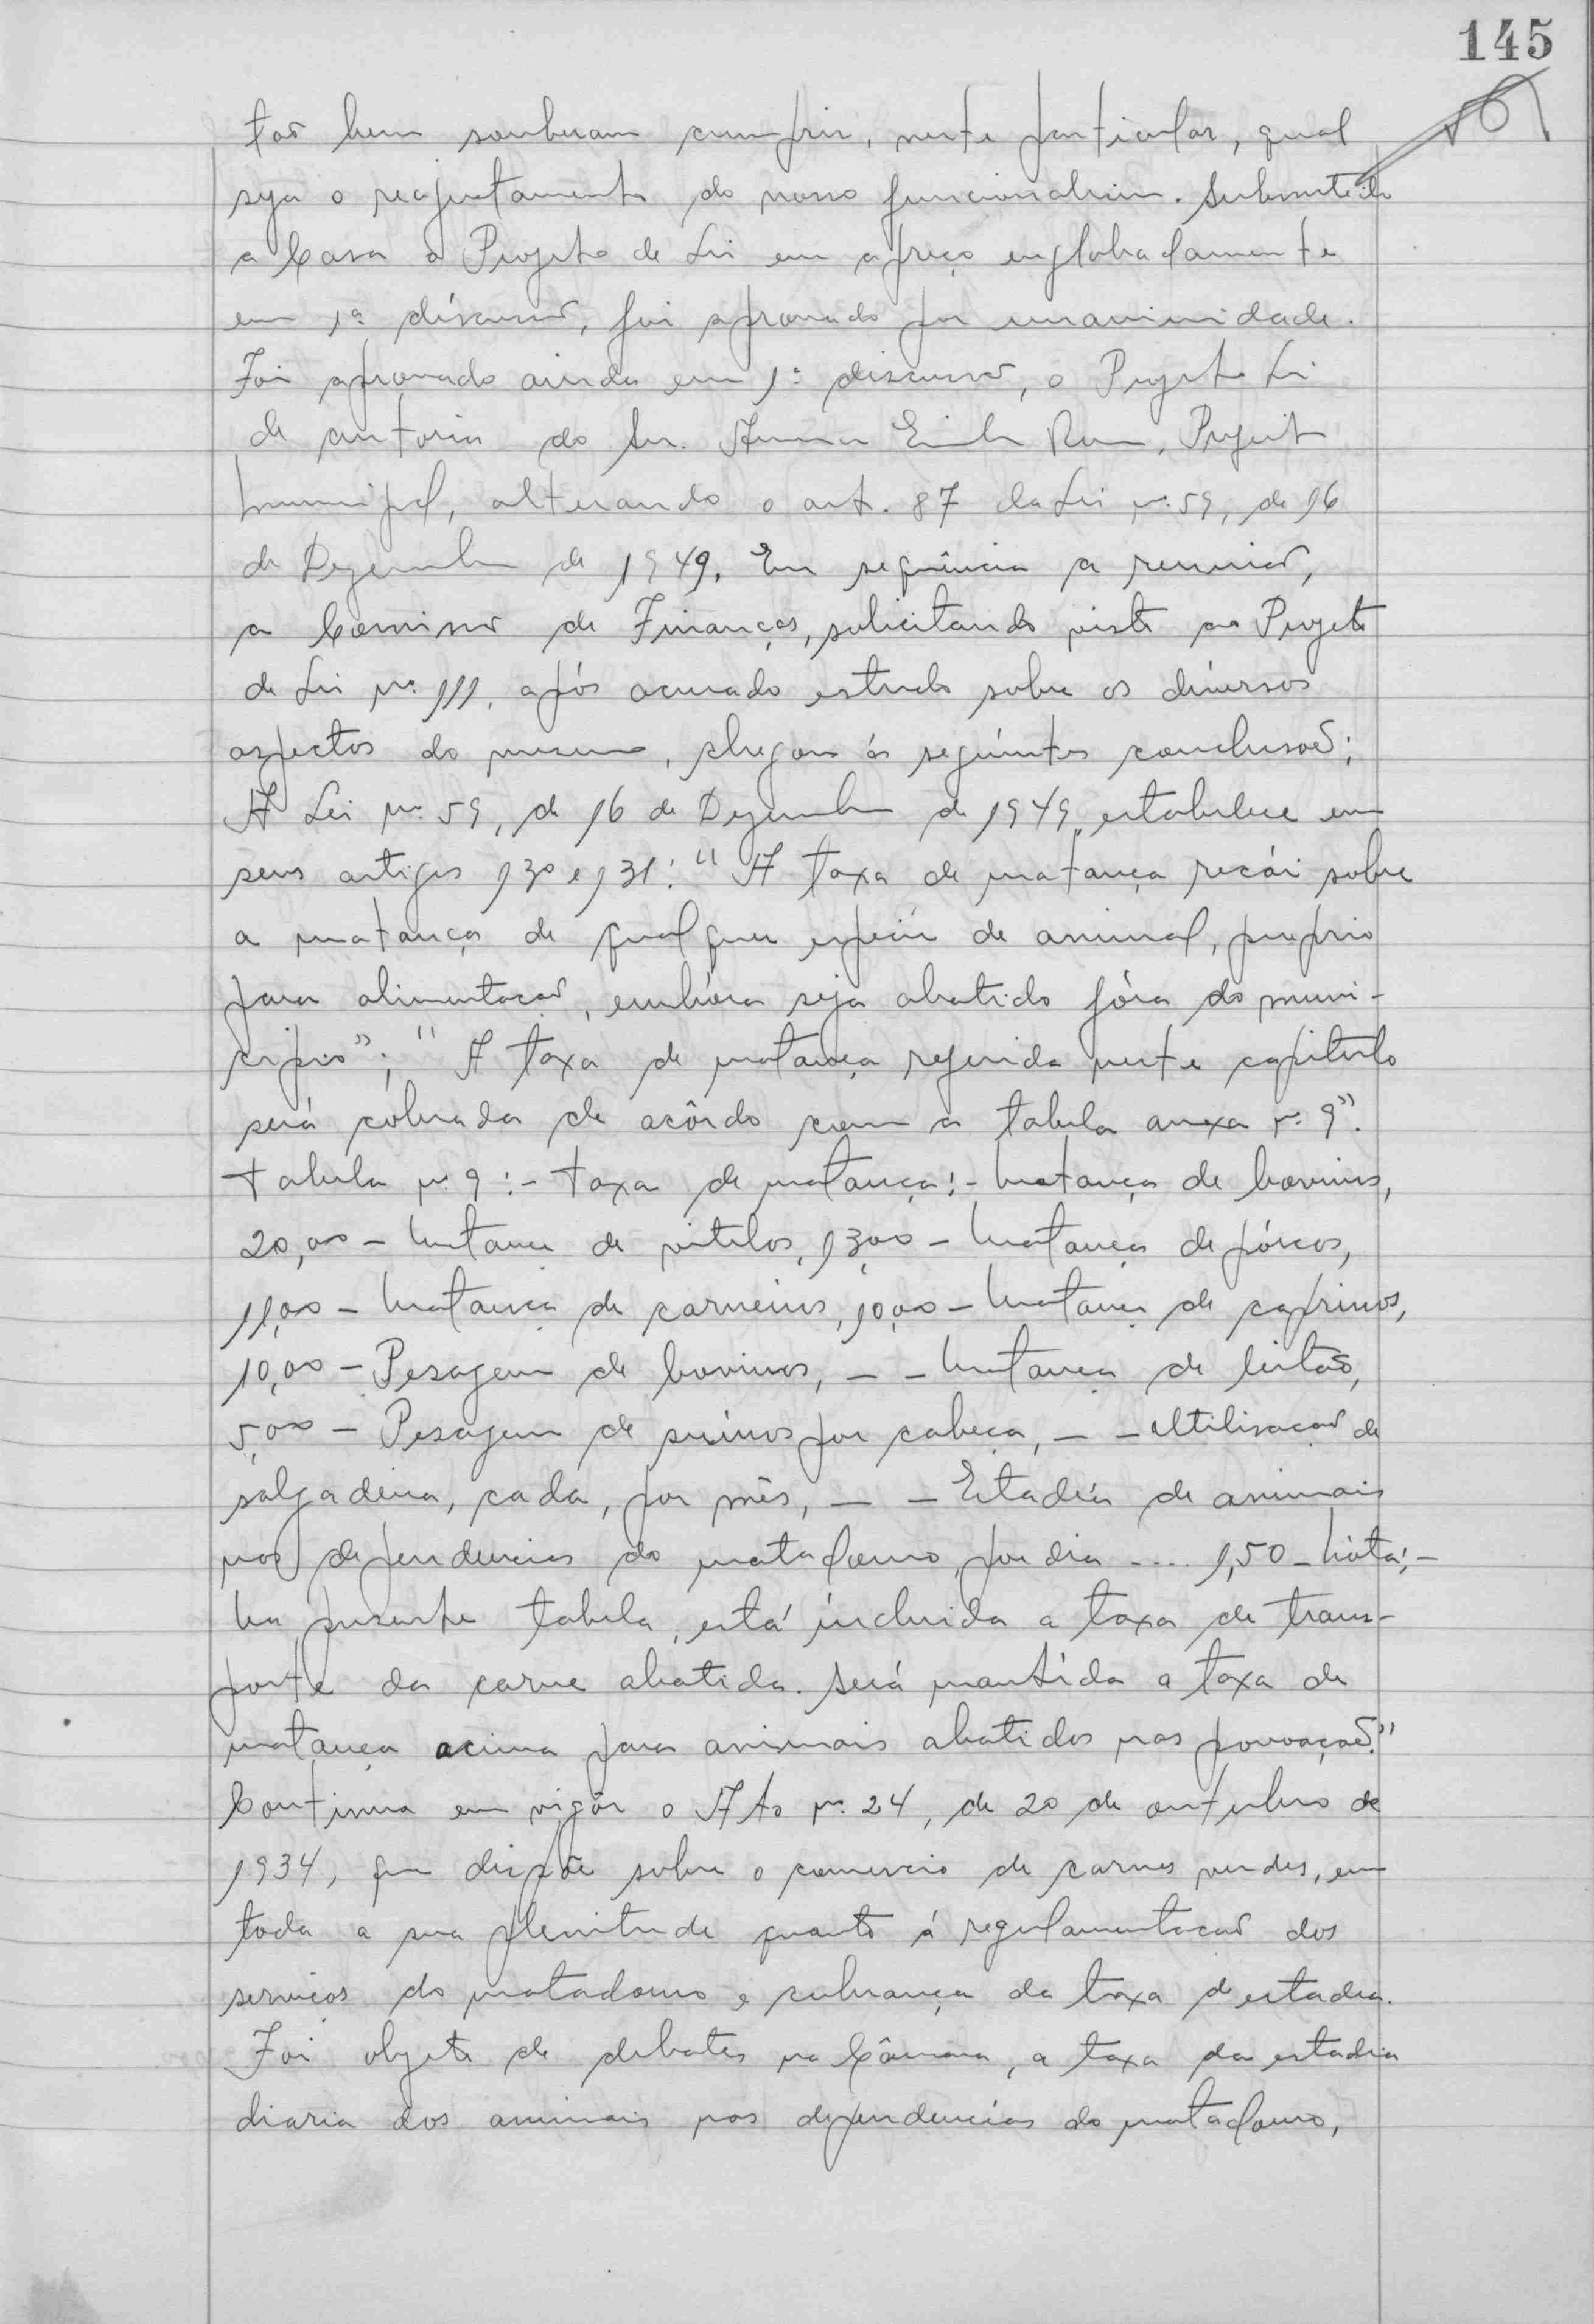 145
tão bem souberam cumprir, neste particular, qual
seja o reajustamento do nosso funcionalismo. Submetido
a Casa o Projeto de Lei em apreço englobadamente
em 1ª discussão, foi aprovado por unanimidade.
Foi aprovado ainda em 1ª discussão, o Projeto Lei
de autoria do Snr. Prefeito
Municipal, alterando o art. 87 da Lei nº 59, de 16
de Dezembro de 1949. Em sequência a reunião,
a Comissão de Finanças, solicitando vista ao Projeto
de Lei nº 111, após acurado estudo sobre os diversos
aspectos do mesmo, chegou ás seguintes conclusões:
A Lei nº 59, de 16 de Dezembro de 1949, estabelece em
seus artigos 130 e 131: "A taxa de matança recái sobre
a matança de qualquer espécie de animal, proprio
para alimentação, embóra seja abatido fóra do muni-
cipio"; "A taxa de matança referida neste capitulo
será cobrada de acôrdo com a tabela anexa nº 9".
Tabela nº 9:- Taxa de matança:- Matança de bovinos,
20,00 - Matança de vitelos, 13,00 - Matança de pórcos,
11,00 - Matança de carneiros, 10,00 - Matança de caprinos,
10,00 - Pesagem de bovinos, - - Matança de leitão,
5,00 - Pesagem de suinos por cabeça, - - Utilisação de
salgadeira, cada, por mês, - - Estadía de animais
nas dependencias do matadouro, por dia .... 1,50 - Nóta:-
Na presente tabela, está incluida a taxa de trans-
porte da carne abatida. Será mantida a taxa de
matança acima para animais abatidos nas povoações."
Continua em vigôr o Ato nº 24, de 20 de outubro de
1934, que dispõe sobre o comercio de carnes verdes, em
toda a sua plenitude quanto á regulamentação dos
serviços do matadouro e cobrança da taxa d'estadia.
Foi objeto de debates na Câmara, a taxa da estadia
diaria dos animais nas dependencias do matadouro,